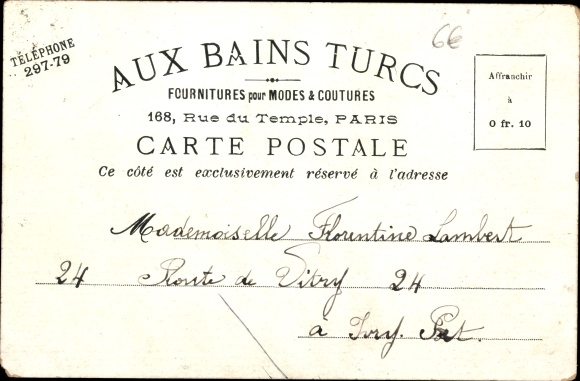 TÉLÉPHONE
297-79
6€
AUX BAINS TURCS
FOURNITURES pour MODES & COUTURES
168, Rue du Temple, PARIS
CARTE POSTALE
Ce côté est exclusivement réservé à l'adresse
Affranchir
à
0 fr. 10
Mademoiselle Florentine Lambert
24 Route de Vitry 24
à Ivry. Pt.